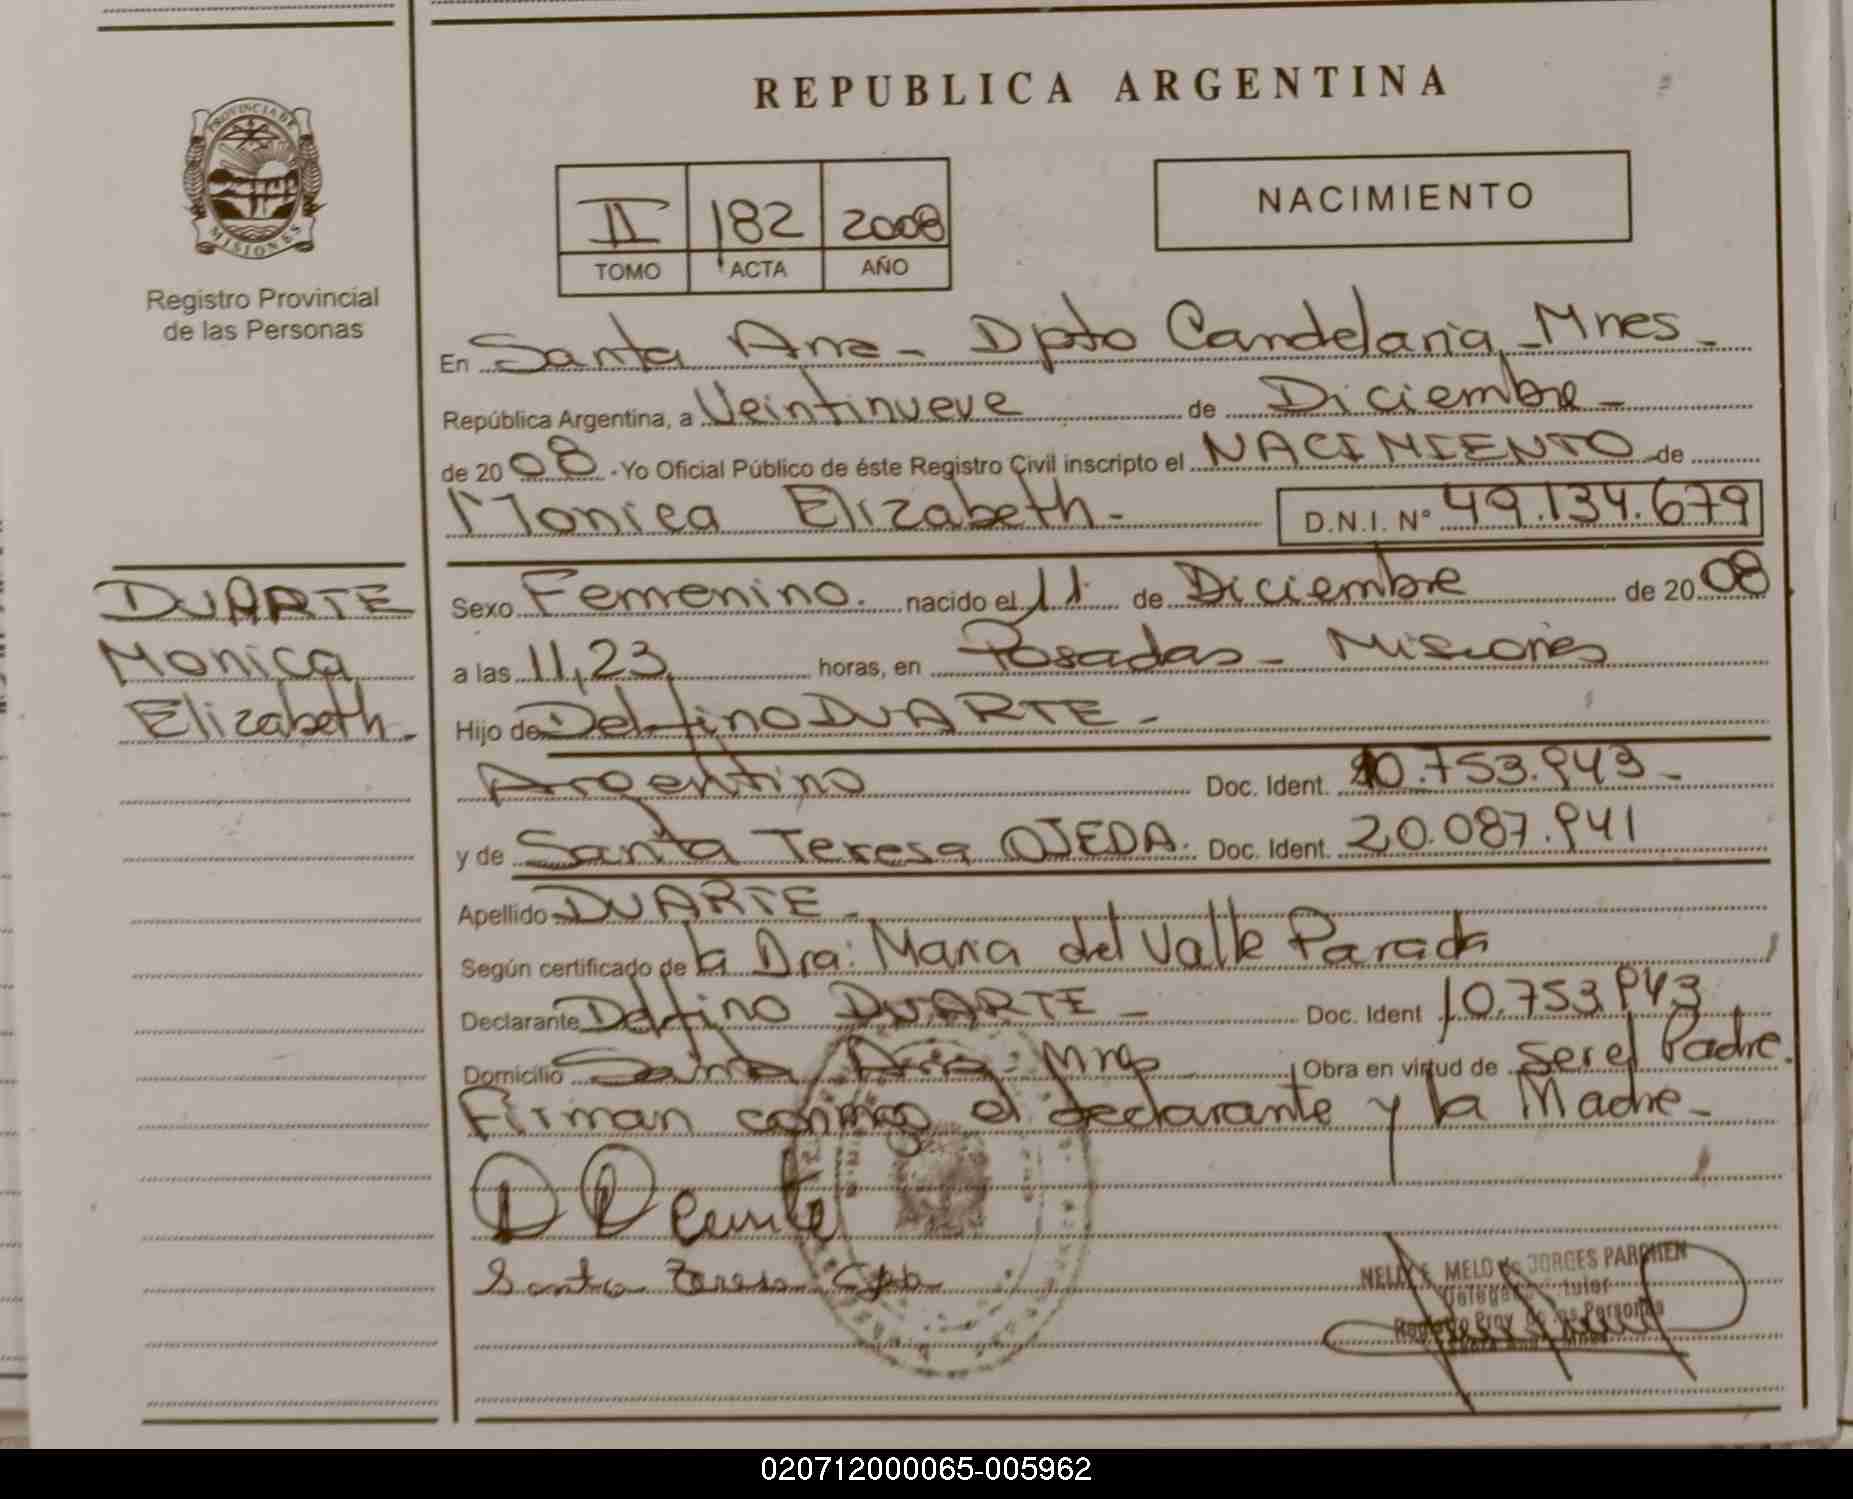 REPUBLICA ARGENTINA
PROVINCIA DE
MISIONES
Registro Provincial
de las Personas
II 182 2008
TOMO ACTA AÑO
NACIMIENTO
En Santa Ana - Dpto Candelaria - Mnes -
República Argentina, a Veintinueve de Diciembre -
de 2008 - Yo Oficial Público de éste Registro Civil inscripto el NACIMIENTO de
Monica Elizabeth - D.N.I. Nº 49.134.679
DUARTE
Monica
Elizabeth -
Sexo Femenino. nacido el 11 de Diciembre de 2008
a las 11,23 horas, en Posadas - Misiones
Hijo de Delfino DUARTE -
Argentino Doc. Ident. 10.753.943 -
y de Santa Teresa OJEDA. Doc. Ident. 20.087.941
Apellido DUARTE -
Según certificado de la Dra: Maria del Valle Parada
Declarante Delfino DUARTE - Doc. Ident 10.753.943
Domicilio Santa Ana - Mnes Obra en virtud de ser el Padre.
Firman conmigo el declarante y la Madre -
Santa Teresa
MELO de JORGES PARCHEN
020712000065-005962